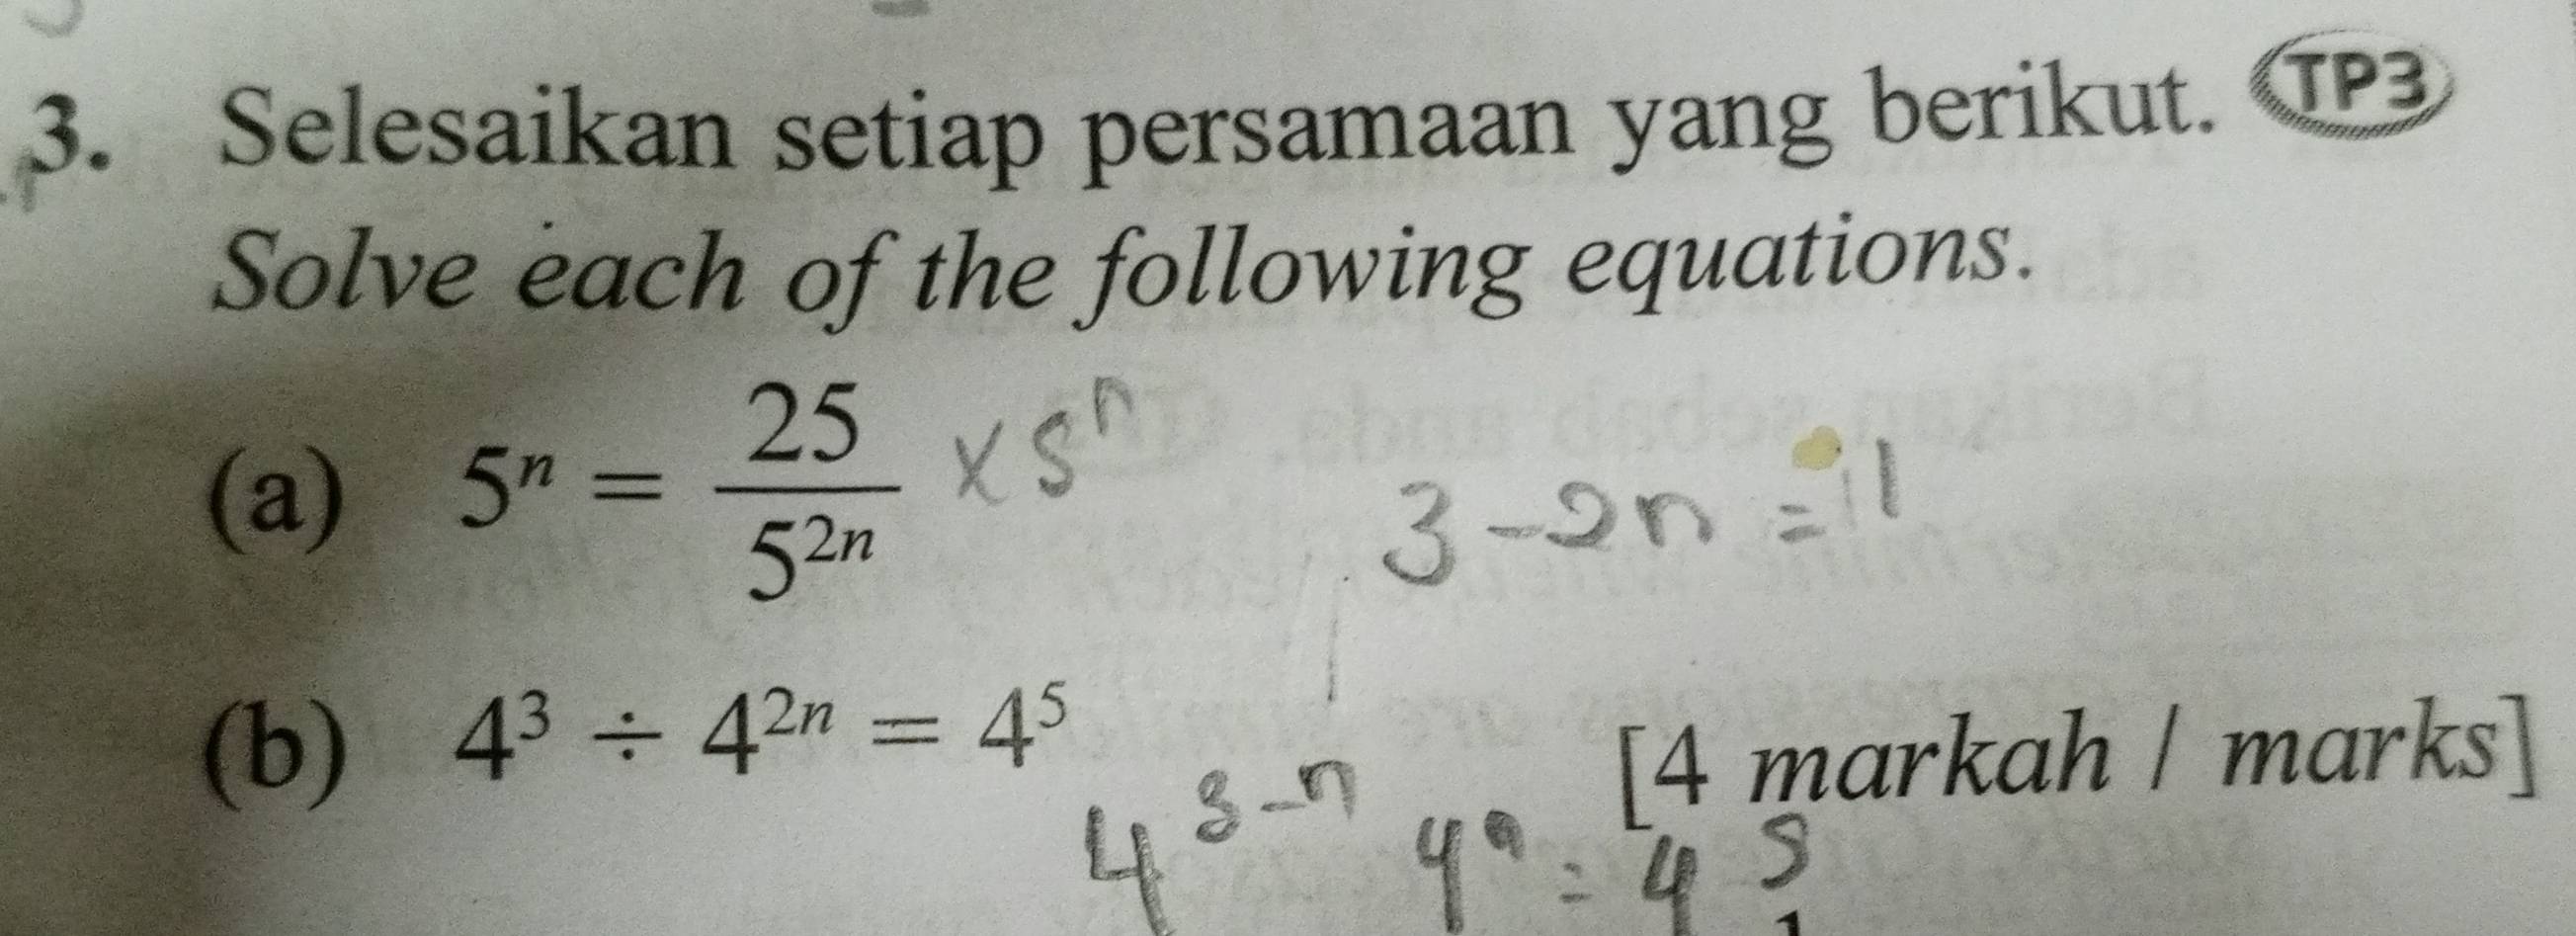 3. Selesaikan setiap persamaan yang berikut. TP3
Solve each of the following equations.
(a) 5ⁿ = 25/5²ⁿ × 5ⁿ
3 - 2n = 1
(b) 4³ ÷ 4²ⁿ = 4⁵
[4 markah / marks]
4³⁻ⁿ 4ⁿ = 4⁵